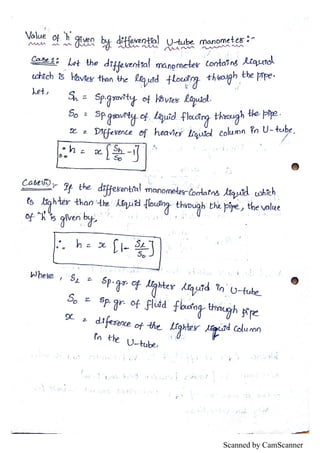 Value of 'h' given by differential U-tube manometer :-
Case1: Let the differential manometer contains liquid
which is hevier than the liquid flowing through the pipe.
Let,
Sh = Sp.gravity of hevier liquid.
So = Sp gravity of liquid flowing through the pipe.
x = Difference of heavier liquid column in U-tube.
∴ h = x [Sh/So - 1]
Case(ii): If the differential manometer contains liquid which
is lighter than the liquid flowing through the pipe, the value
of "h" is given by,
∴ h = x [1 - SL/So]
Where, SL = Sp.gr. of lighter liquid in U-tube
So = sp. gr. of fluid flowing through pipe
x = difference of the lighter liquid column
in the U-tube.
Scanned by CamScanner